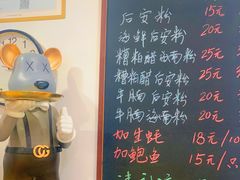 后安粉 15元
海鲜后安粉 20元
糟粕醋海南粉 25元
糟粕醋后安粉 25元
牛腩后安粉 20元
牛腩海南粉 20元
加生蚝 18元/10
加鲍鱼 15元/只